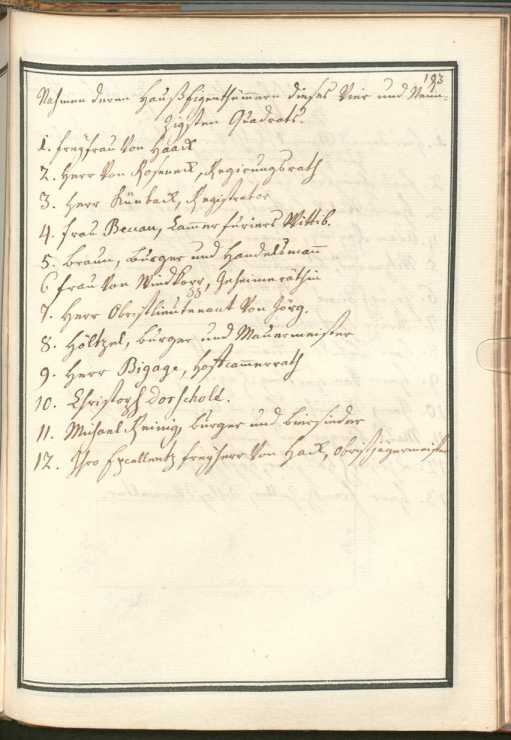 193
Nahmen deren Haußeigenthümmern dieses Vier und Neun-
zigsten Quadrats.
1. Freyfrau Von Haack
2. Herr Von Roseneck, Regierungsrath
3. Herr Registrator
4. Frau Becuau, Camerfuriers Wittib.
5. Braun, burger und Handelsmañ
6 Frau Von Geheimeräthin
7. Herr Obristlieutenant Von Jörg.
8. Höltzel, burger und Mauermeister
9. Herr Bigage, Hoffcammerrath
10. Christoph Dorschold.
11. Michael Reinig burger und biersieder
12. Ihro Excellentz Freyherr Von Hack, Obristjägermeister